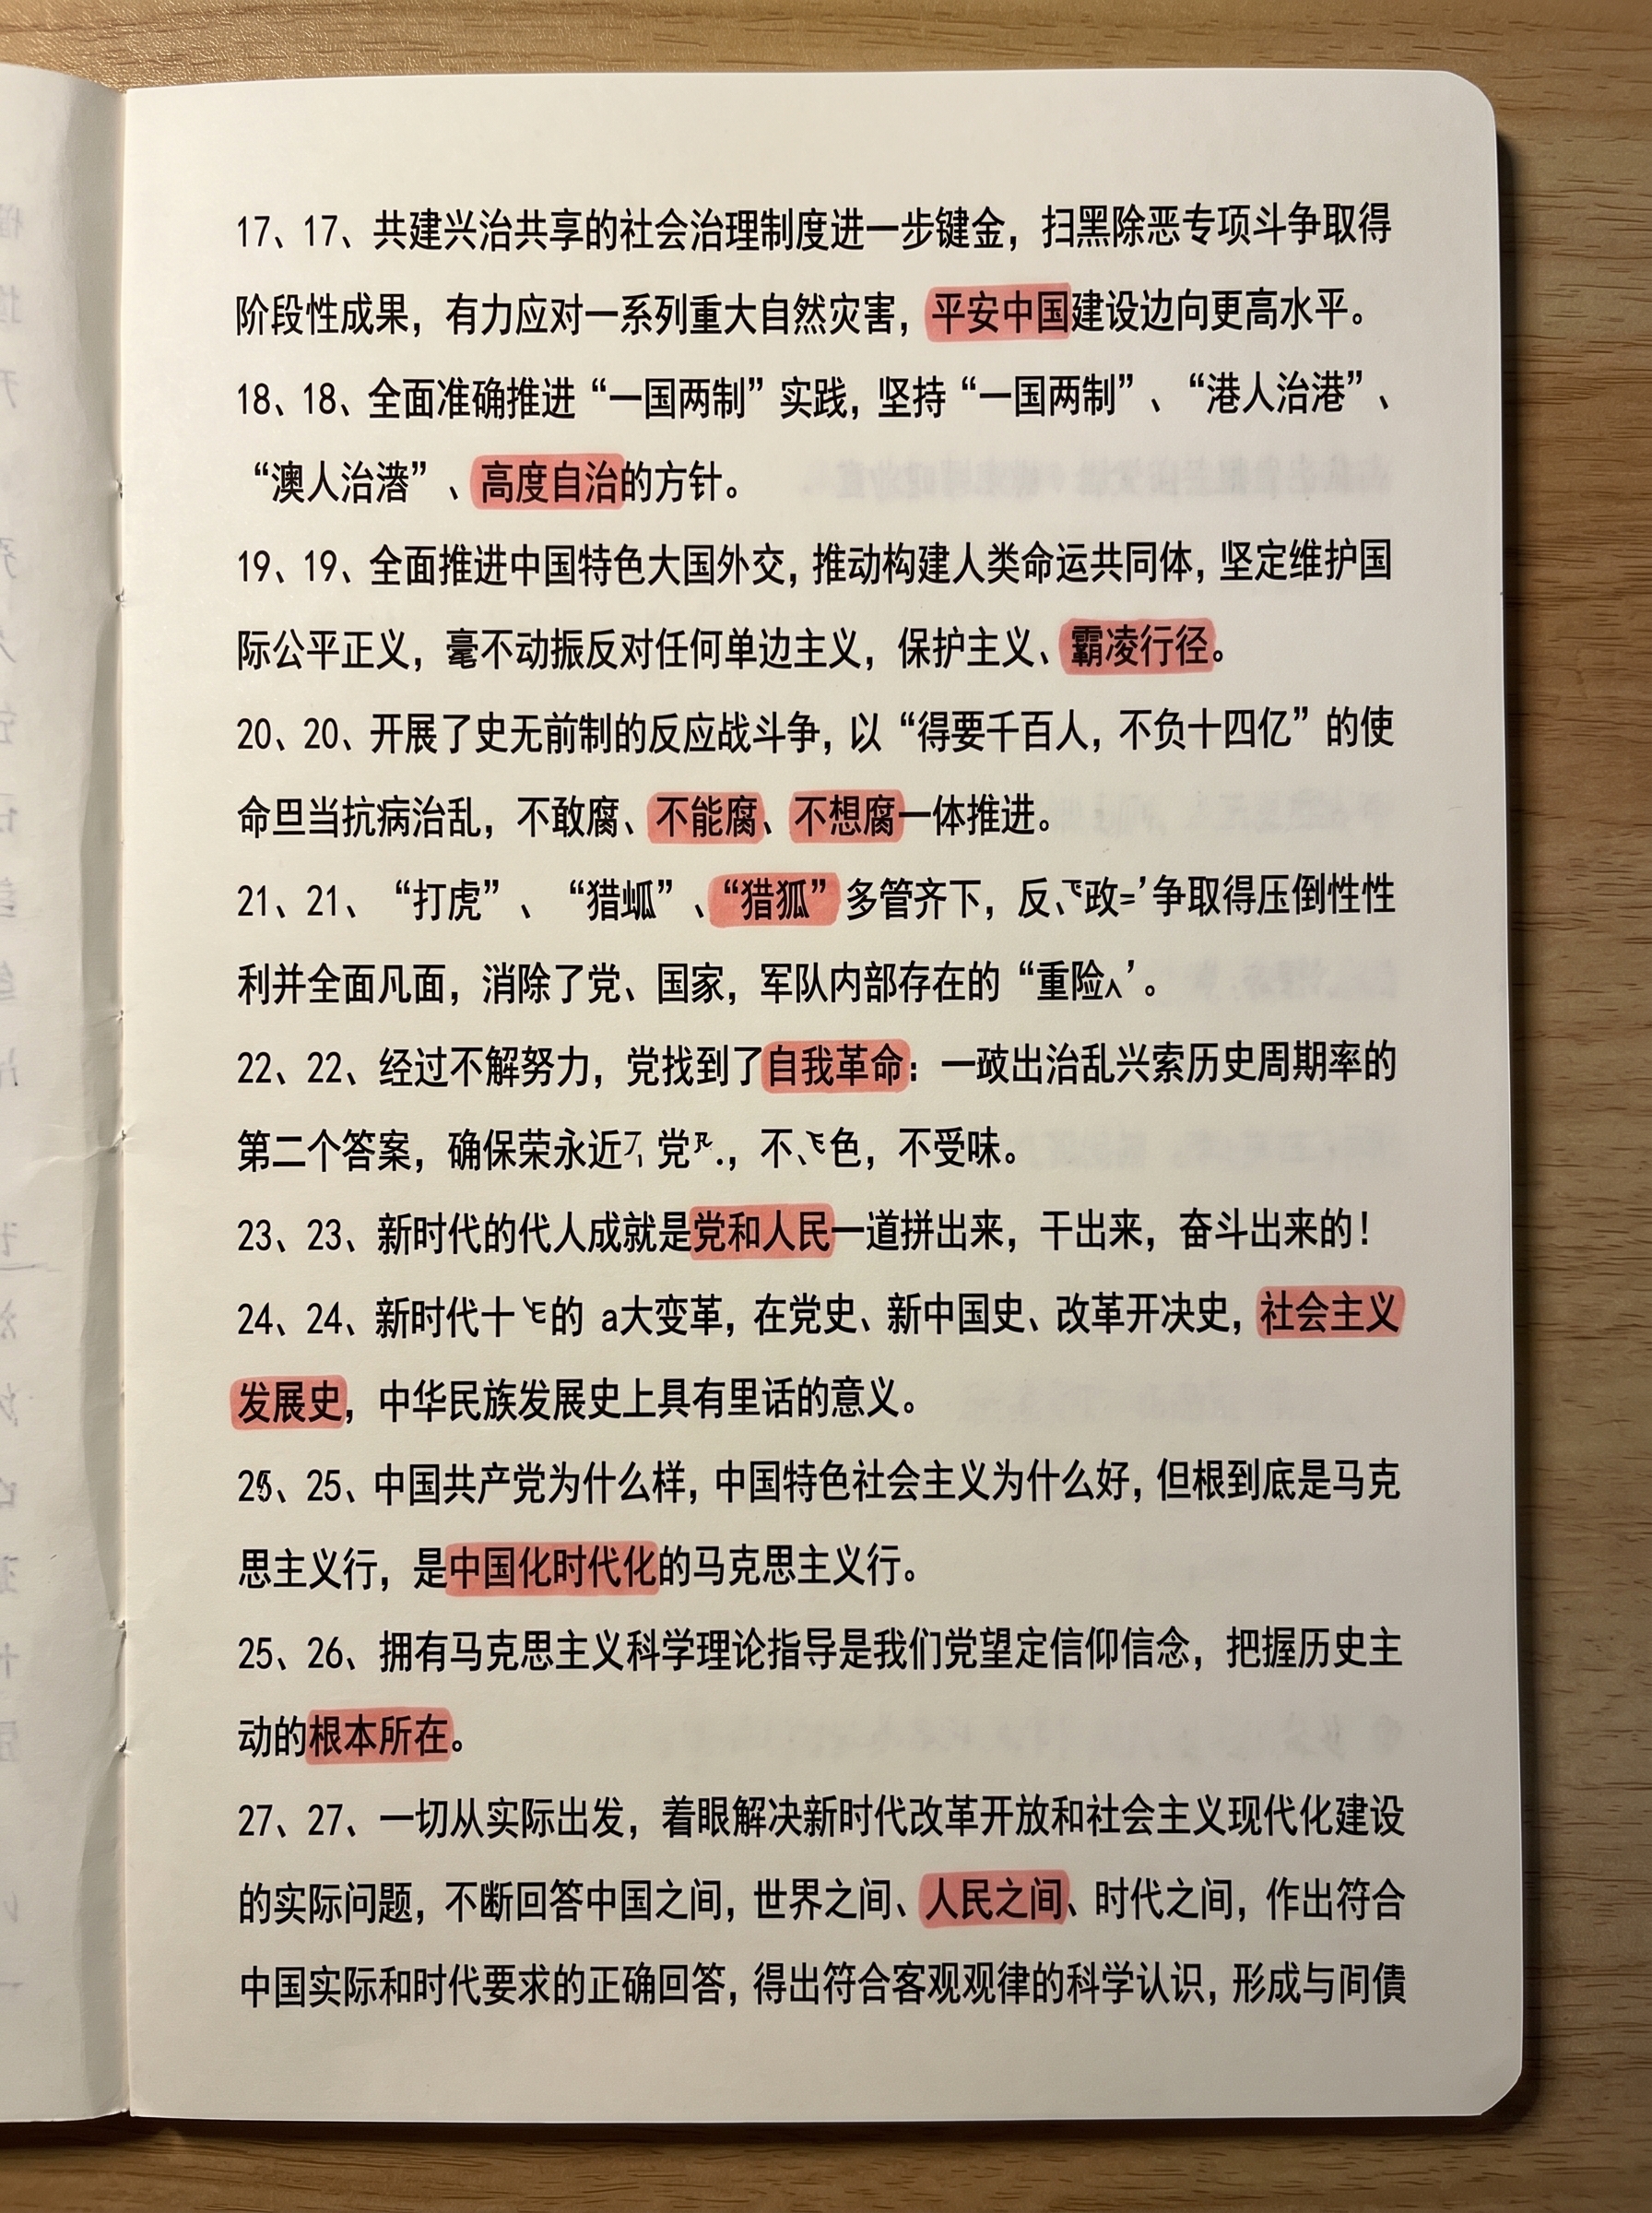 17、17、共建兴治共享的社会治理制度进一步键金，扫黑除恶专项斗争取得
阶段性成果，有力应对一系列重大自然灾害，平安中国建设边向更高水平。
18、18、全面准确推进“一国两制”实践，坚持“一国两制”、“港人治港”、
“澳人治”、高度自治的方针。
19、19、全面推进中国特色大国外交，推动构建人类命运共同体，坚定维护国
际公平正义，毫不动振反对任何单边主义，保护主义、霸凌行径。
20、20、开展了史无前制的反应战斗争，以“得要千百人，不负十四亿”的使
命旦当抗病治乱，不敢腐、不能腐、不想腐一体推进。
21、21、“打虎”、“猎”、“猎狐”多管齐下，反、政=’争取得压倒性性
利并全面凡面，消除了党、国家，军队内部存在的“重险’。
22、22、经过不解努力，党找到了自我革命：一歧出治乱兴索历史周期率的
第二个答案，确保荣永近 党，不、色，不受味。
23、23、新时代的代人成就是党和人民一道拼出来，干出来，奋斗出来的！
24、24、新时代十的 a大变革，在党史、新中国史、改革开决史，社会主义
发展史，中华民族发展史上具有里话的意义。
25、中国共产党为什么样，中国特色社会主义为什么好，但根到底是马克
思主义行，是中国化时代化的马克思主义行。
25、26、拥有马克思主义科学理论指导是我们党望定信仰信念，把握历史主
动的根本所在。
27、27、一切从实际出发，着眼解决新时代改革开放和社会主义现代化建设
的实际问题，不断回答中国之间，世界之间、人民之间、时代之间，作出符合
中国实际和时代要求的正确回答，得出符合客观观律的科学认识，形成与间債